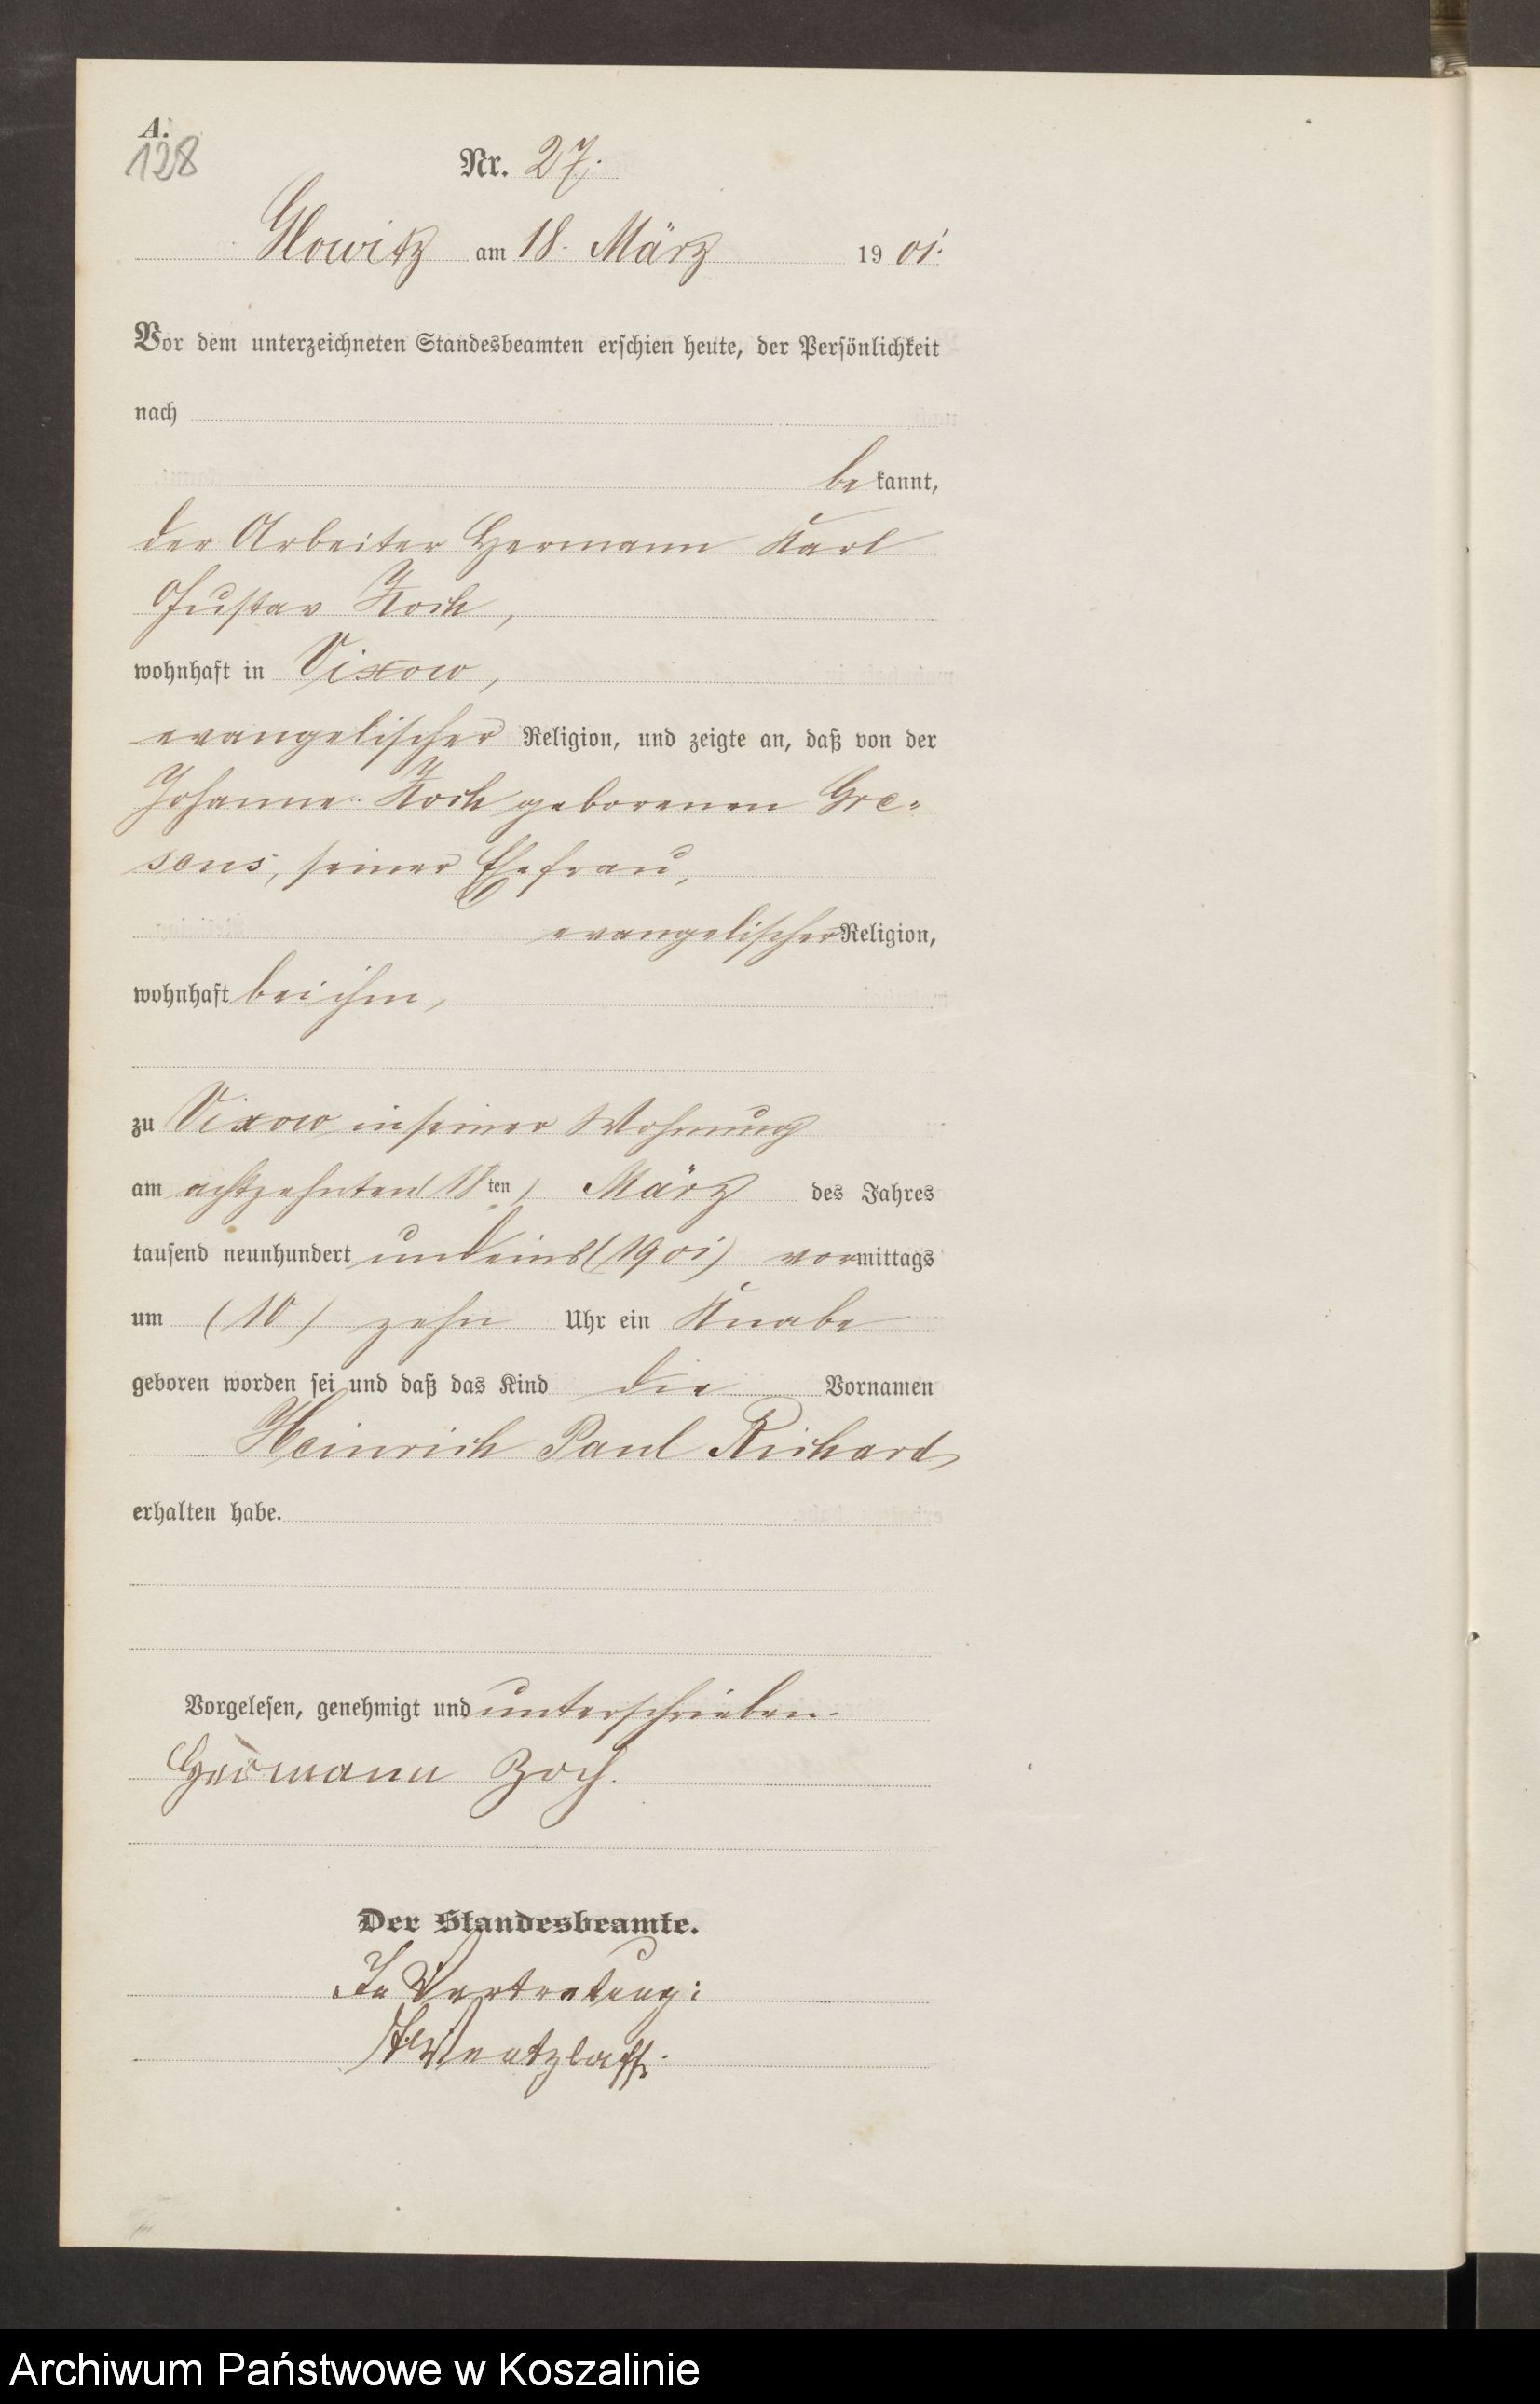 A.
128
Nr. 27.
Glowitz am 18. März 1901.
Vor dem unterzeichneten Standesbeamten erschien heute, der Persönlichkeit
nach
bekannt,
der Arbeiter Hermann Karl
Gustav Koch,
wohnhaft in Vixow,
evangelischer Religion, und zeigte an, daß von der
Johanne Koch geborenen Gre=
sens, seiner Ehefrau,
evangelischer Religion,
wohnhaft bei ihm,
zu Vixow in seiner Wohnung
am achtzehnten (18ten) März des Jahres
tausend neunhundert und eins (1901) vormittags
um (10) zehn Uhr ein Knabe
geboren worden sei und daß das Kind die Vornamen
Heinrich Paul Richard
erhalten habe.
Vorgelesen, genehmigt und unterschrieben.
Hermann
Der Standesbeamte.
In Vertretung:
Wentzlaff.
Archiwum Państwowe w Koszalinie